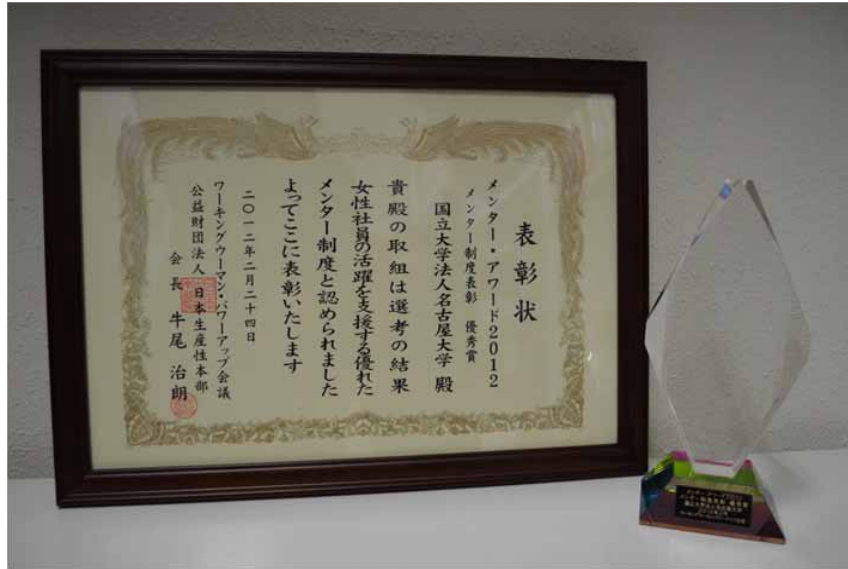 表彰状
メンター・アワード2012
メンター制度表彰 優秀賞
国立大学法人名古屋大学 殿
貴殿の取組は選考の結果
女性社員の活躍を支援する優れた
メンター制度と認められました
よってここに表彰いたします
二〇一二年二月二十四日
ワーキングウーマン・パワーアップ会議
公益財団法人 日本生産性本部
会長 牛尾 治朗